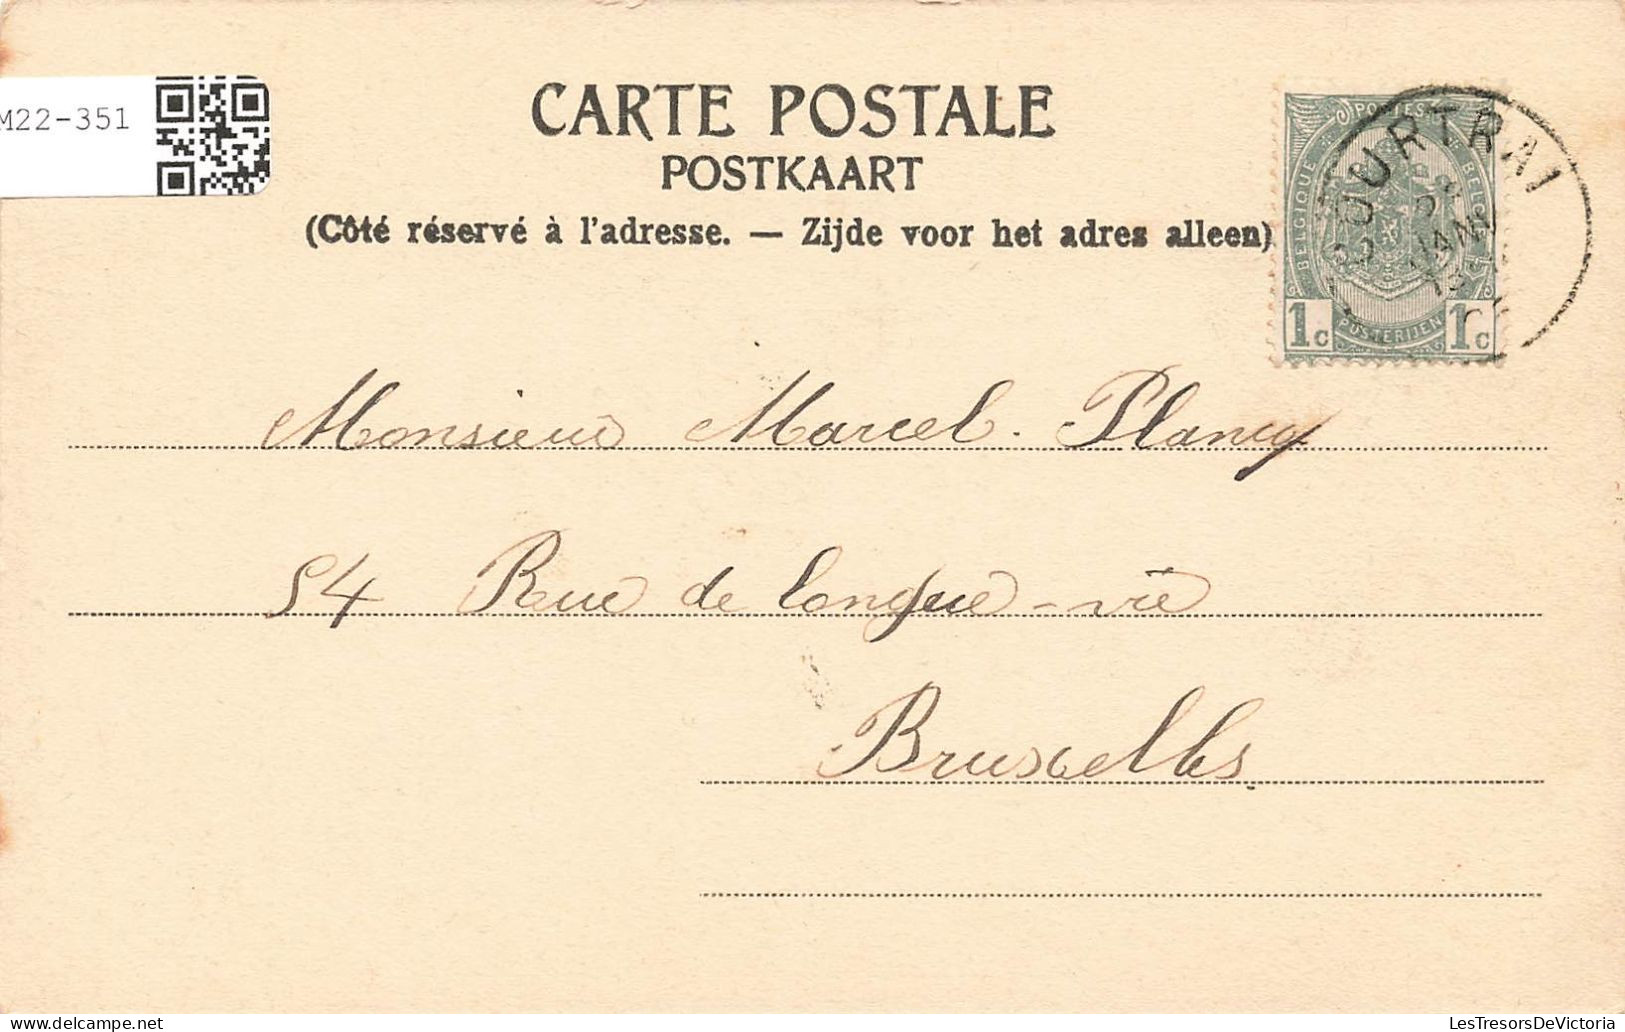 M22-351
CARTE POSTALE
POSTKAART
(Côté réservé à l'adresse. — Zijde voor het adres alleen)
POSTES
BELGIQUE BELGIË
1c POSTERIJEN 1c
COURTRAI
JANV
Monsieur Marcel Plancq
54 Rue de Longue-vie
Bruxelles
LesTresorsDeVictoria